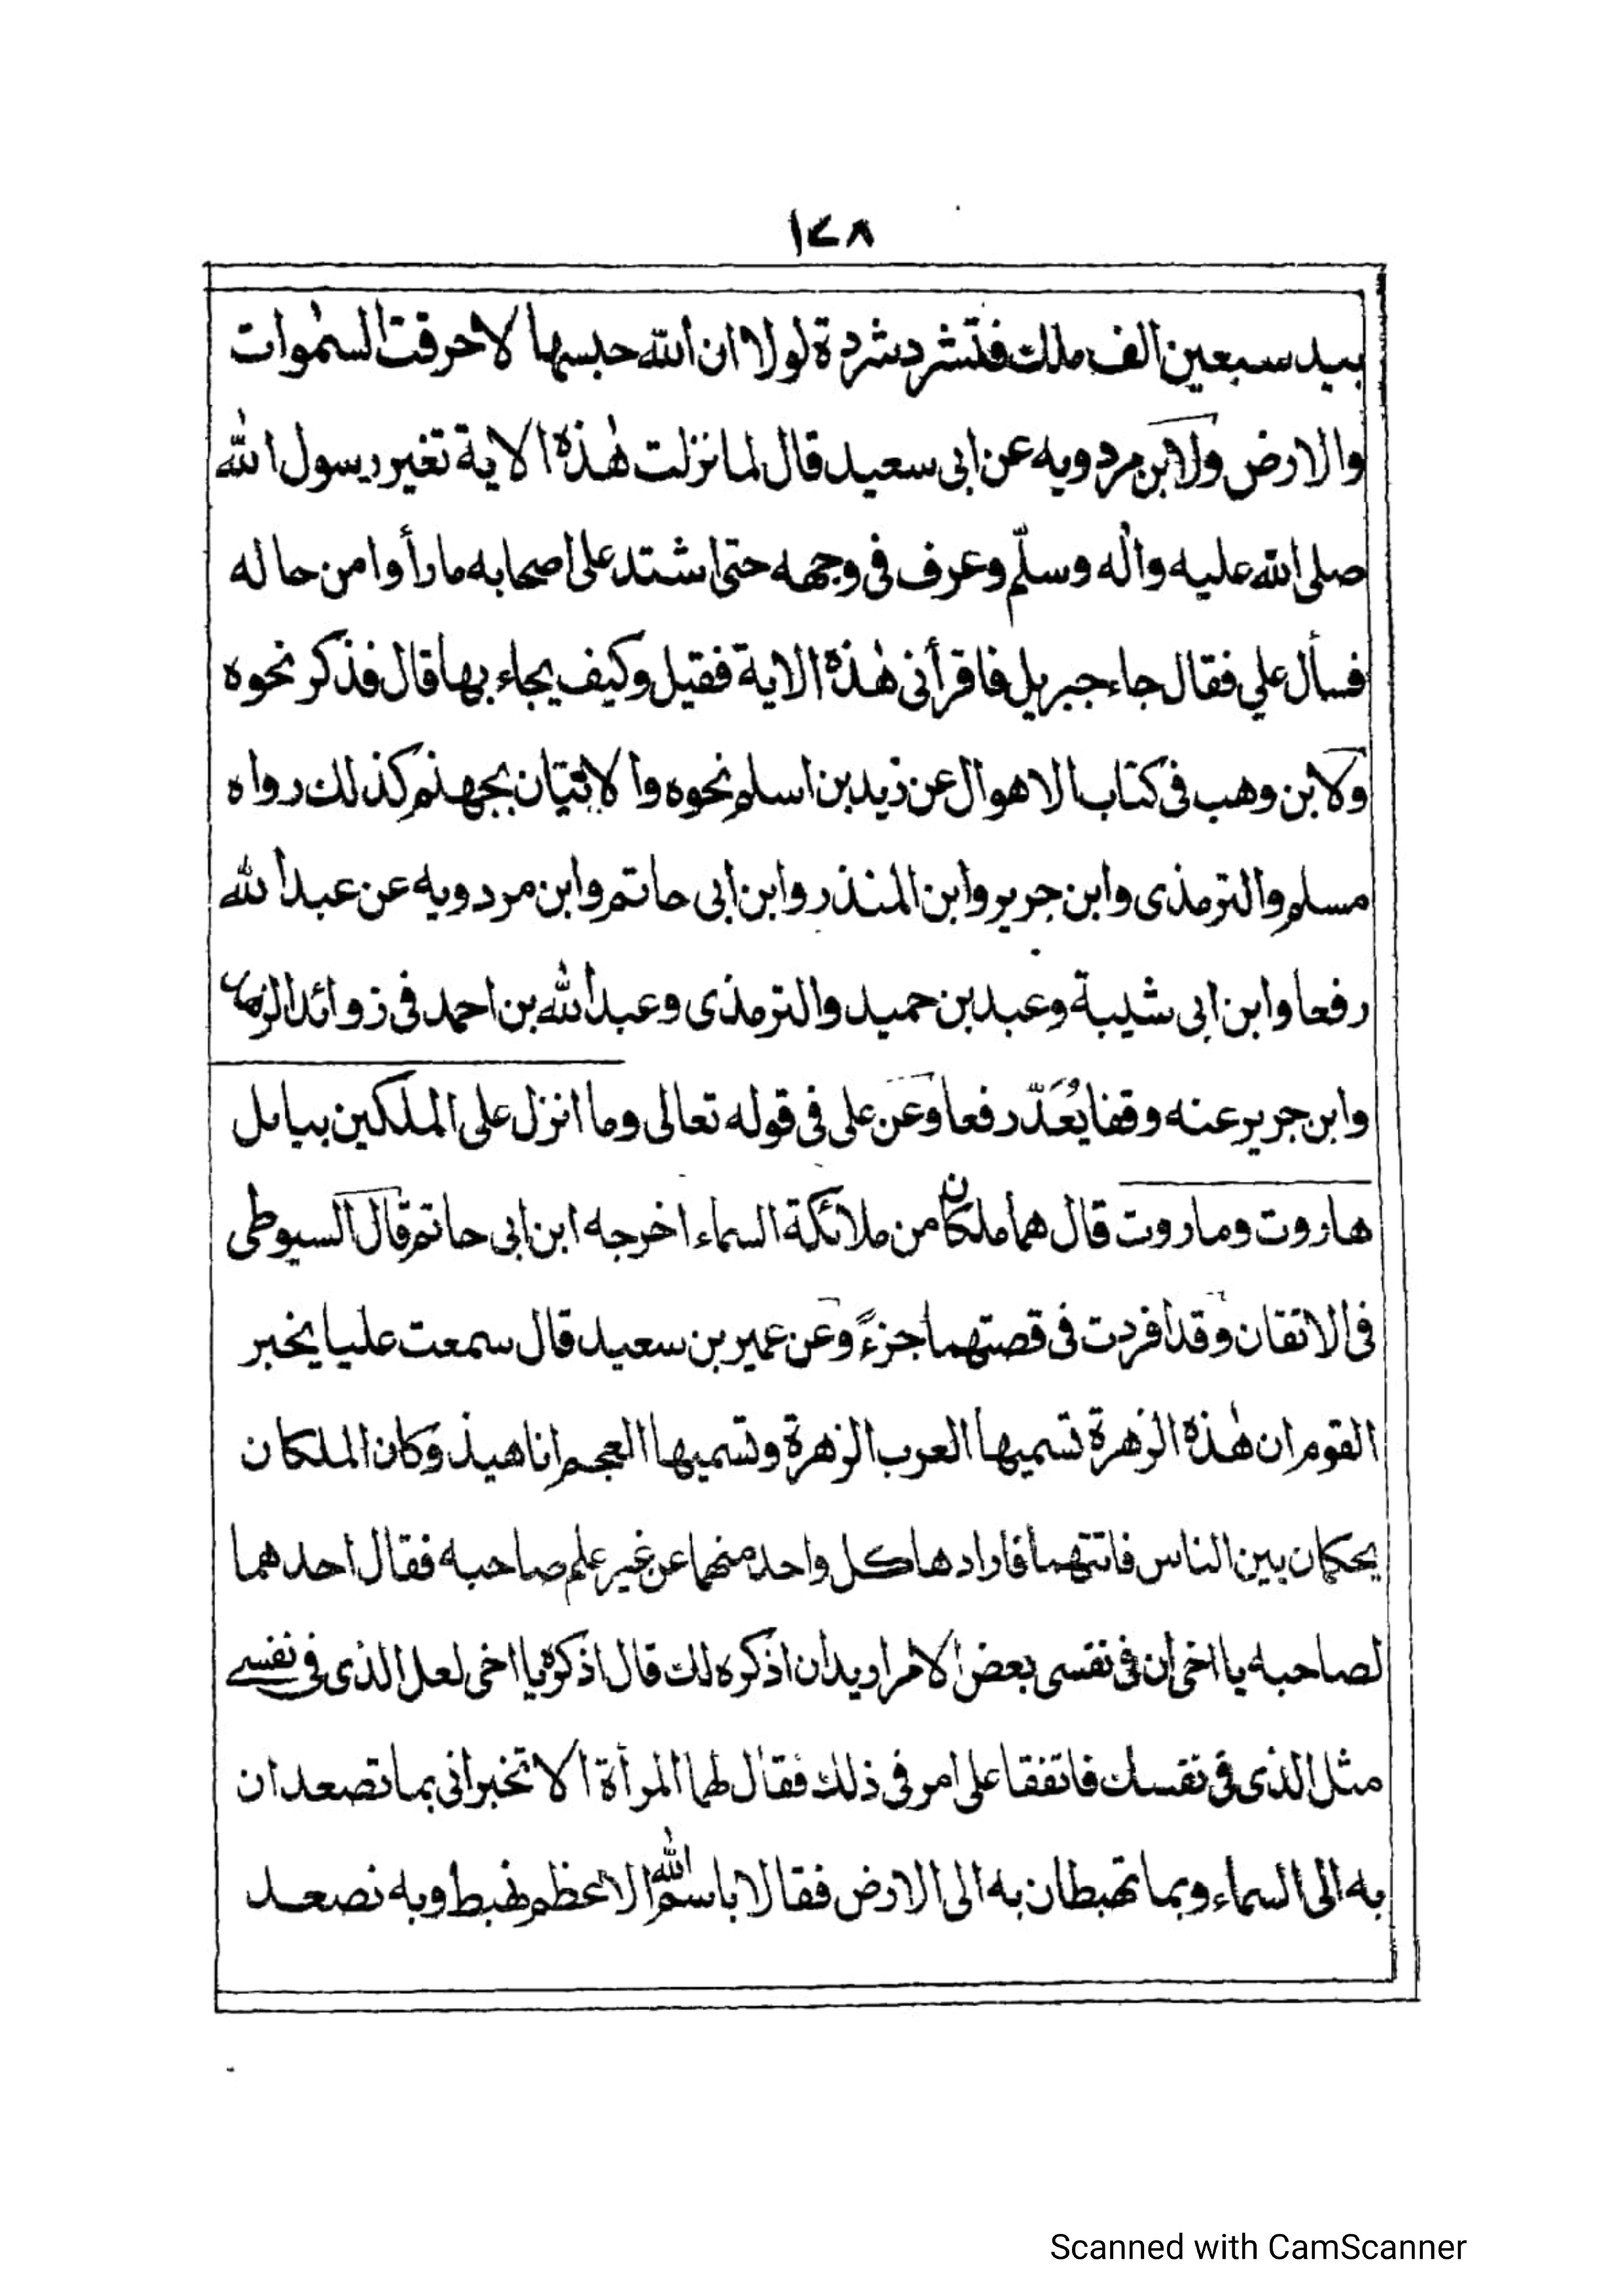 ١٤٨
بيد سبعين الف ملك فتشرد شردة لولا ان الله حبسها لاحرقت السمٰوات
والارض ولابن مردويه عن ابى سعيد قال لما نزلت هٰذه الاية تغير رسول الله
صلى الله عليه واٰله وسلّم وعرف فى وجهه حتى اشتد على اصحابه ما رأوا من حاله
فسأل علي فقال جاء جبريل فاقرأنى هٰذه الاية فقيل وكيف يجاء بها قال فذكر نحوه
ولابن وهب فى كتاب الاهوال عن زيد بن اسلم نحوه والاتيان بجهنم كذلك رواه
مسلم والترمذى وابن جرير وابن المنذر وابن ابى حاتم وابن مردويه عن عبد الله
رفعا وابن ابى شيبة وعبد بن حميد والترمذى وعبد الله بن احمد فى زوائد الزهد
وابن جرير عنه وقفا يُعَدّ رفعا وعن على فى قوله تعالى وما انزل على الملكين ببابل
هاروت وماروت قال هما ملكان من ملائكة السماء اخرجه ابن ابى حاتم قال السيوطى
فى الاتقان وقد افردت فى قصتهما جزءً وعن عمير بن سعيد قال سمعت عليا يخبر
القوم ان هٰذه الزهرة تسميها العرب الزهرة وتسميها العجم اناهيذ وكان الملكان
يحكمان بين الناس فاتتهما فارادها كل واحد منهما عن غير علم صاحبه فقال احدهما
لصاحبه يا اخى ان فى نفسى بعض الامر اريد ان اذكره لك قال اذكره يا اخى لعل الذى فى نفسى
مثل الذى فى نفسك فاتفقا على امر فى ذلك فقال لهما المرأة الا تخبرانى بما تصعدان
به الى السماء وبما تهبطان به الى الارض فقالا باسم الله الاعظم نهبط وبه نصعد
Scanned with CamScanner